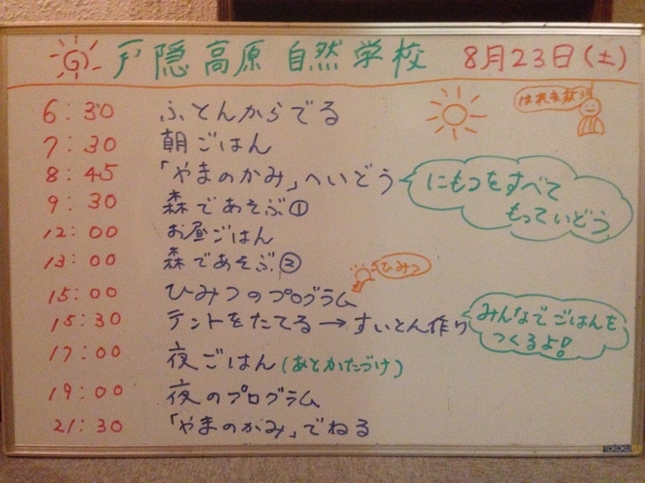 戸隠高原 自然学校 8月23日(土)
6:30 ふとんからでる
7:30 朝ごはん
8:45 「やまのかみ」へいどう
にもつをすべて
もっていどう
9:30 森であそぶ①
12:00 お昼ごはん
13:00 森であそぶ②
ひみつ
15:00 ひみつのプログラム
15:30 テントをたてる→すいとん作り
みんなでごはんを
つくるよ!
17:00 夜ごはん(あとかたづけ)
19:00 夜のプログラム
21:30 「やまのかみ」でねる